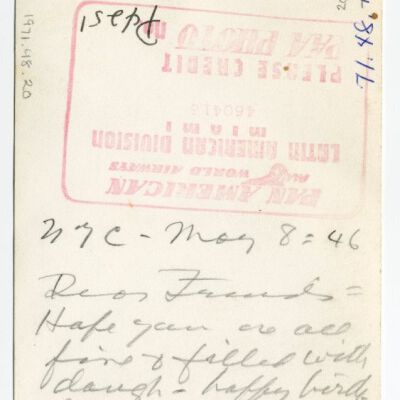 1971.48.20
20
71.48.
Please!
PLEASE CREDIT
PAA PHOTO
460416
MIAMI
LATIN AMERICAN DIVISION
PAN AMERICAN
WORLD AIRWAYS
NYC - May 8 = 46
Dear Friends =
Hope you are all
fine & filled with
dough - happy birth